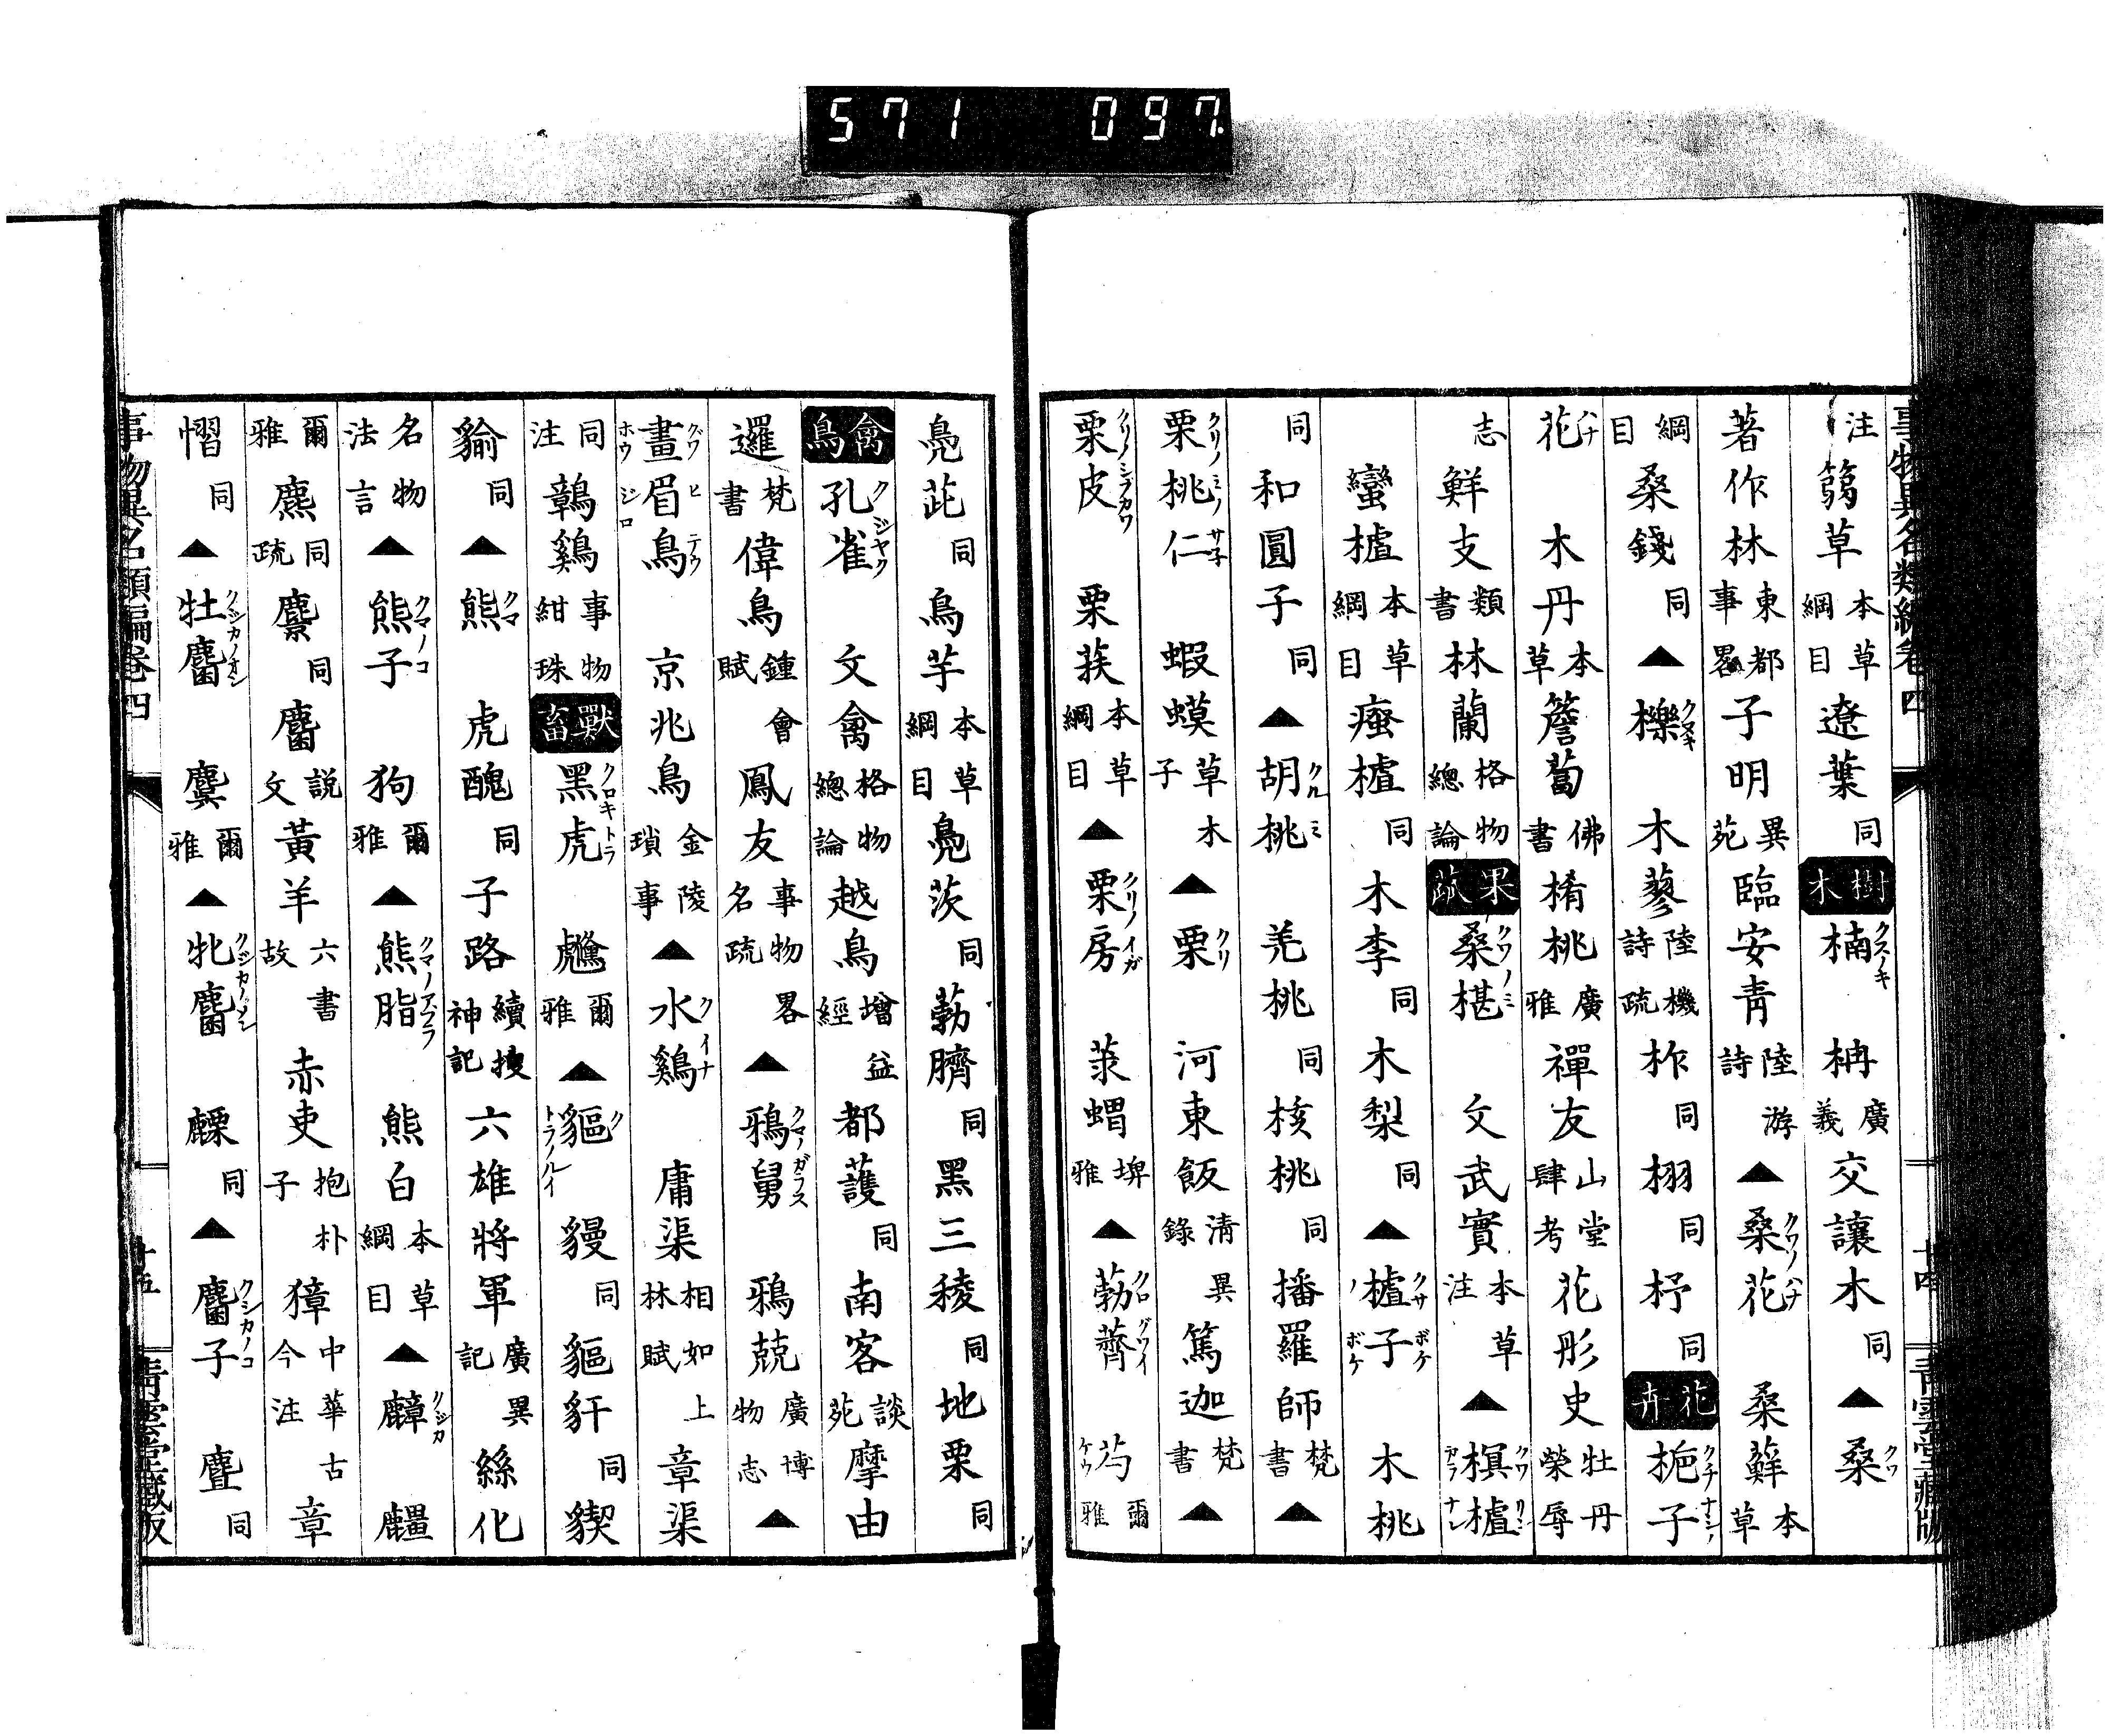 571 097.
事物異名類編卷四
注 篛草 本草綱目 遼葉 同 樹木 楠 クスノキ 柟 廣義 交讓木 同 ▲桑 クワ
著作林 東都事畧 子明 異苑 臨安青 陸游詩 ▲桑花 クワノハナ 桑蘚 本草
綱目 桑錢 同 ▲櫟 クヌキ 木蓼 陸機詩疏 柞 同 栩 同 杼 同 花卉 梔子 クチナシノ
花 ハナ 木丹 本草 簷蔔 佛書 楕桃 廣雅 禪友 山堂肆考 花彤史 牡丹榮辱
志 鮮支 類書 林蘭 格物總論 果蓏 桑椹 クワノミ 文武實 本草注 ▲榠樝 クワリン カラナシ
蠻樝 本草綱目 瘙樝 同 木李 同 木梨 同 ▲樝子 クサボケ ノボケ 木桃
同 和圓子 同 ▲胡桃 クルミ 羌桃 同 核桃 同 播羅師 梵書 ▲
栗桃仁 クリノミノサネ 栗 蝦蟆 草木子 ▲栗 クリ 河東飯 清異錄 篤迦 梵書 ▲
栗皮 クリノシブカワ 栗荴 本草綱目 ▲栗房 クリノイガ 莍蝟 埤雅 ▲葧薺 クログワイ 芍 ケウ 爾雅
十四 青雲堂藏版
鳧茈 同 烏芋 本草綱目 鳧茨 同 葧臍 同 黑三稜 同 地栗 同
禽鳥 孔雀 クジヤク 文禽 格物總論 越鳥 增益經 都護 同 南客 談苑 摩由
邏 梵書 偉鳥 鍾會賦 鳳友 事物名疏畧 ▲鴉舅 クマノガラス 鴉兢 廣博物志 ▲
畫眉鳥 グワヒテウ ホウジロ 京兆鳥 金陵瑣事 ▲水鷄 クイナ 庸渠 相如上林賦 章渠
同注 鷤鷄 事物紺珠 獸畜 黑虎 クロキトラ 虪 爾雅 ▲貙 ク トラノルイ 貗 同 貙豻 同 貕
貐 同 ▲熊 クマ 虎醜 同 子路 續搜神記 六雄將軍 廣異記 絲化
名物法言 ▲熊子 クマノコ 狗 爾雅 ▲熊脂 クマノアブラ 熊白 本草綱目 ▲麞 クジカ 麠
爾雅 麃 同疏 麖 同 麕 說文 黃羊 六書故 赤吏 抱朴子 獐 中華古今注 章
慴 同 ▲牡麕 クジカノオシ 麌 爾雅 ▲牝麕 クジカノメシ 麜 同 ▲麕子 クジカノコ 麆 同
事物異名類編卷四 十五 青雲堂藏版